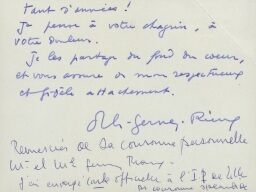 tant d'années !
Je pense à votre chagrin, à
votre douleur.
Je les partage du fond du coeur,
et vous assure de mon respectueux
et fidèle attachement.
Remerciés de la couronne personnelle
Mr et Ml
J'ai envoyé carte officielle à l'I de Lille
couronne